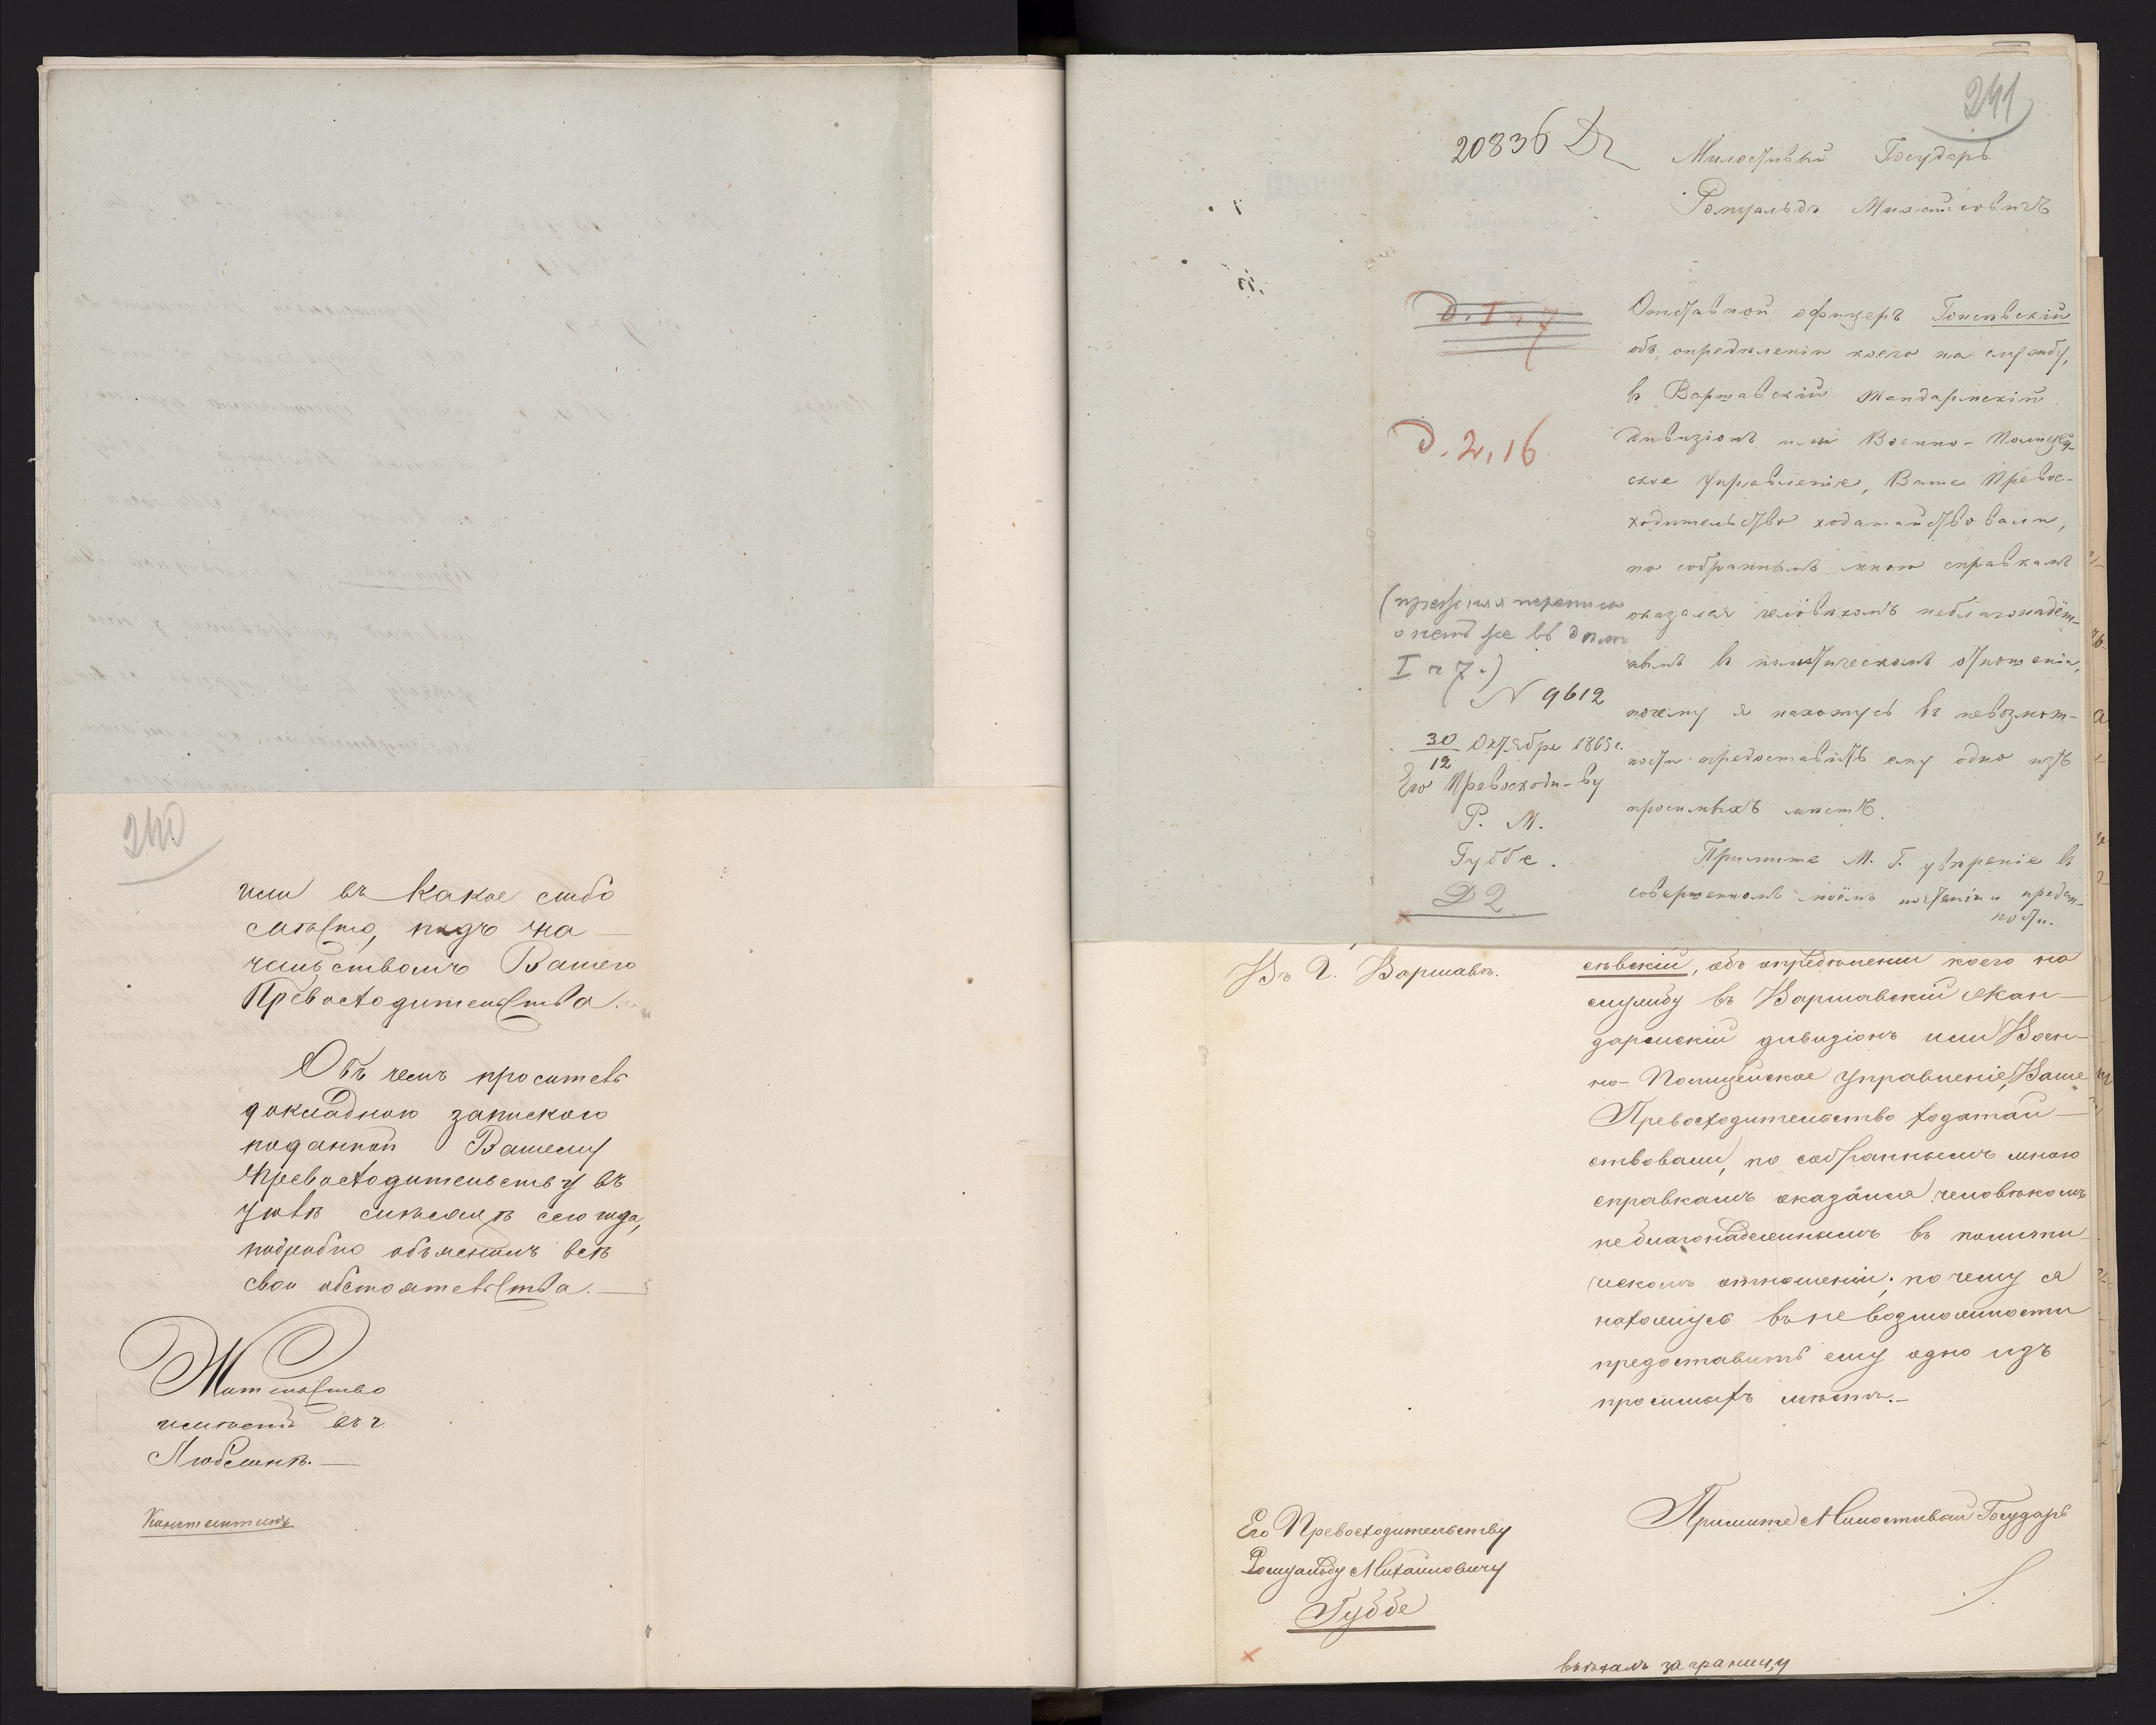 240
или въ какое либо
мѣсто, подъ на-
чальствомъ Вашего
Превосходительства.
Объ чемъ проситель
докладною запискою
поданной Вашему
Превосходительству въ
Іюлѣ мѣсяцѣ сего года,
подробно объяснилъ всѣ
свои обстоятельства.
Жительство
имѣетъ въ г.
Люблинѣ.
241
20836
Милостивый Государь
Ромуальдъ Михайловичъ
Д. I ч 7
Отставной офицеръ
объ опредѣленіи коего на службу,
въ Варшавскій Жандармскій
Д. 2, 16
дивизіонъ или Военно-Полицей-
ское Управленіе, Ваше Превос-
ходительство ходатайствовали,
по собраннымъ мною справкамъ
оказался человѣкомъ неблагонадёж-
нымъ въ политическомъ отношеніи,
почему я нахожусь въ невозмож-
ности предоставить ему одно изъ
просимыхъ мѣстъ.
Примите М. Г. увѣреніе въ
совершенномъ моёмъ почтеніи и предан-
ности.
(прежняя переписка
о немъ же въ дѣлѣ
I ч 7.)
N 9612
30/12 Октября 1865 г.
Его Превосходи-ву
Р. М.
Губбе.
Д 2
Въ г. Варшавѣ.
сѣвскій, объ опредѣленіи коего на
службу въ Варшавскій Жан-
дармскій дивизіонъ или Воен-
но-Полицейское Управленіе, Ваше
Превосходительство ходатай-
ствовали, по собраннымъ мною
справкамъ оказался человѣкомъ
неблагонадежнымъ въ полити-
ческомъ отношеніи; почему я
нахожусь въ невозможности
предоставить ему одно изъ
просимыхъ мѣстъ.
Примите Милостивый Государь
Его Превосходительству
Ромуальду Михайловичу
Губбе
выѣхалъ за границу